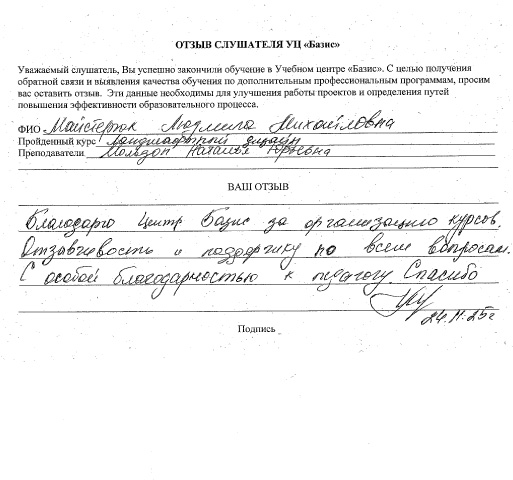 ОТЗЫВ СЛУШАТЕЛЯ УЦ «Базис»
Уважаемый слушатель, Вы успешно закончили обучение в Учебном центре «Базис». С целью получения
обратной связи и выявления качества обучения по дополнительным профессиональным программам, просим
вас оставить отзыв. Эти данные необходимы для улучшения работы проектов и определения путей
повышения эффективности образовательного процесса.
ФИО Майстерюк Людмила Михайловна
Пройденный курс Ландшафтный дизайн
Преподаватели Наталья Юрьевна
ВАШ ОТЗЫВ
Благодарю Центр Базис за организацию курсов.
Отзывчивость и поддержку по всем вопросам.
С особой благодарностью к педагогу. Спасибо
24.11.25г
Подпись